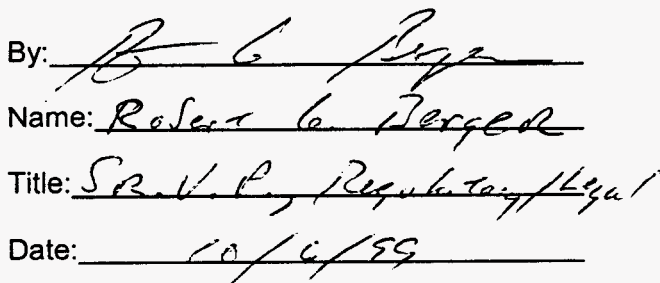 By:
Name: Robert G. Berger
Title: SR. V. P., Regulatory/Legal
Date: 10/6/99